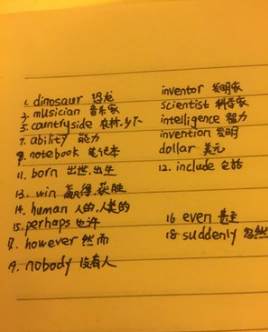 1. dinosaur 恐龙 inventor 发明家
3. musician 音乐家 scientist 科学家
5. countryside 农村,乡下 intelligence 智力
7. ability 能力 invention 发明
9. notebook 笔记本 dollar 美元
11. born 出世,出生 12. include 包括
13. win 赢得,获胜
14. human 人的,人类的
15. perhaps 也许 16 even 甚至
17. however 然而 18 suddenly 忽然
19. nobody 没有人